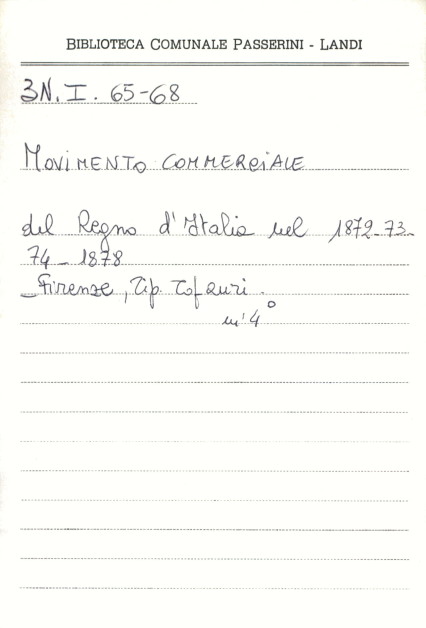 BIBLIOTECA COMUNALE PASSERINI - LANDI
3N. I. 65-68
MOVIMENTO COMMERCIALE
del Regno d'Italia nel 1872-73-
74 - 1878
Firenze, Tip. Tofani.
in 4°